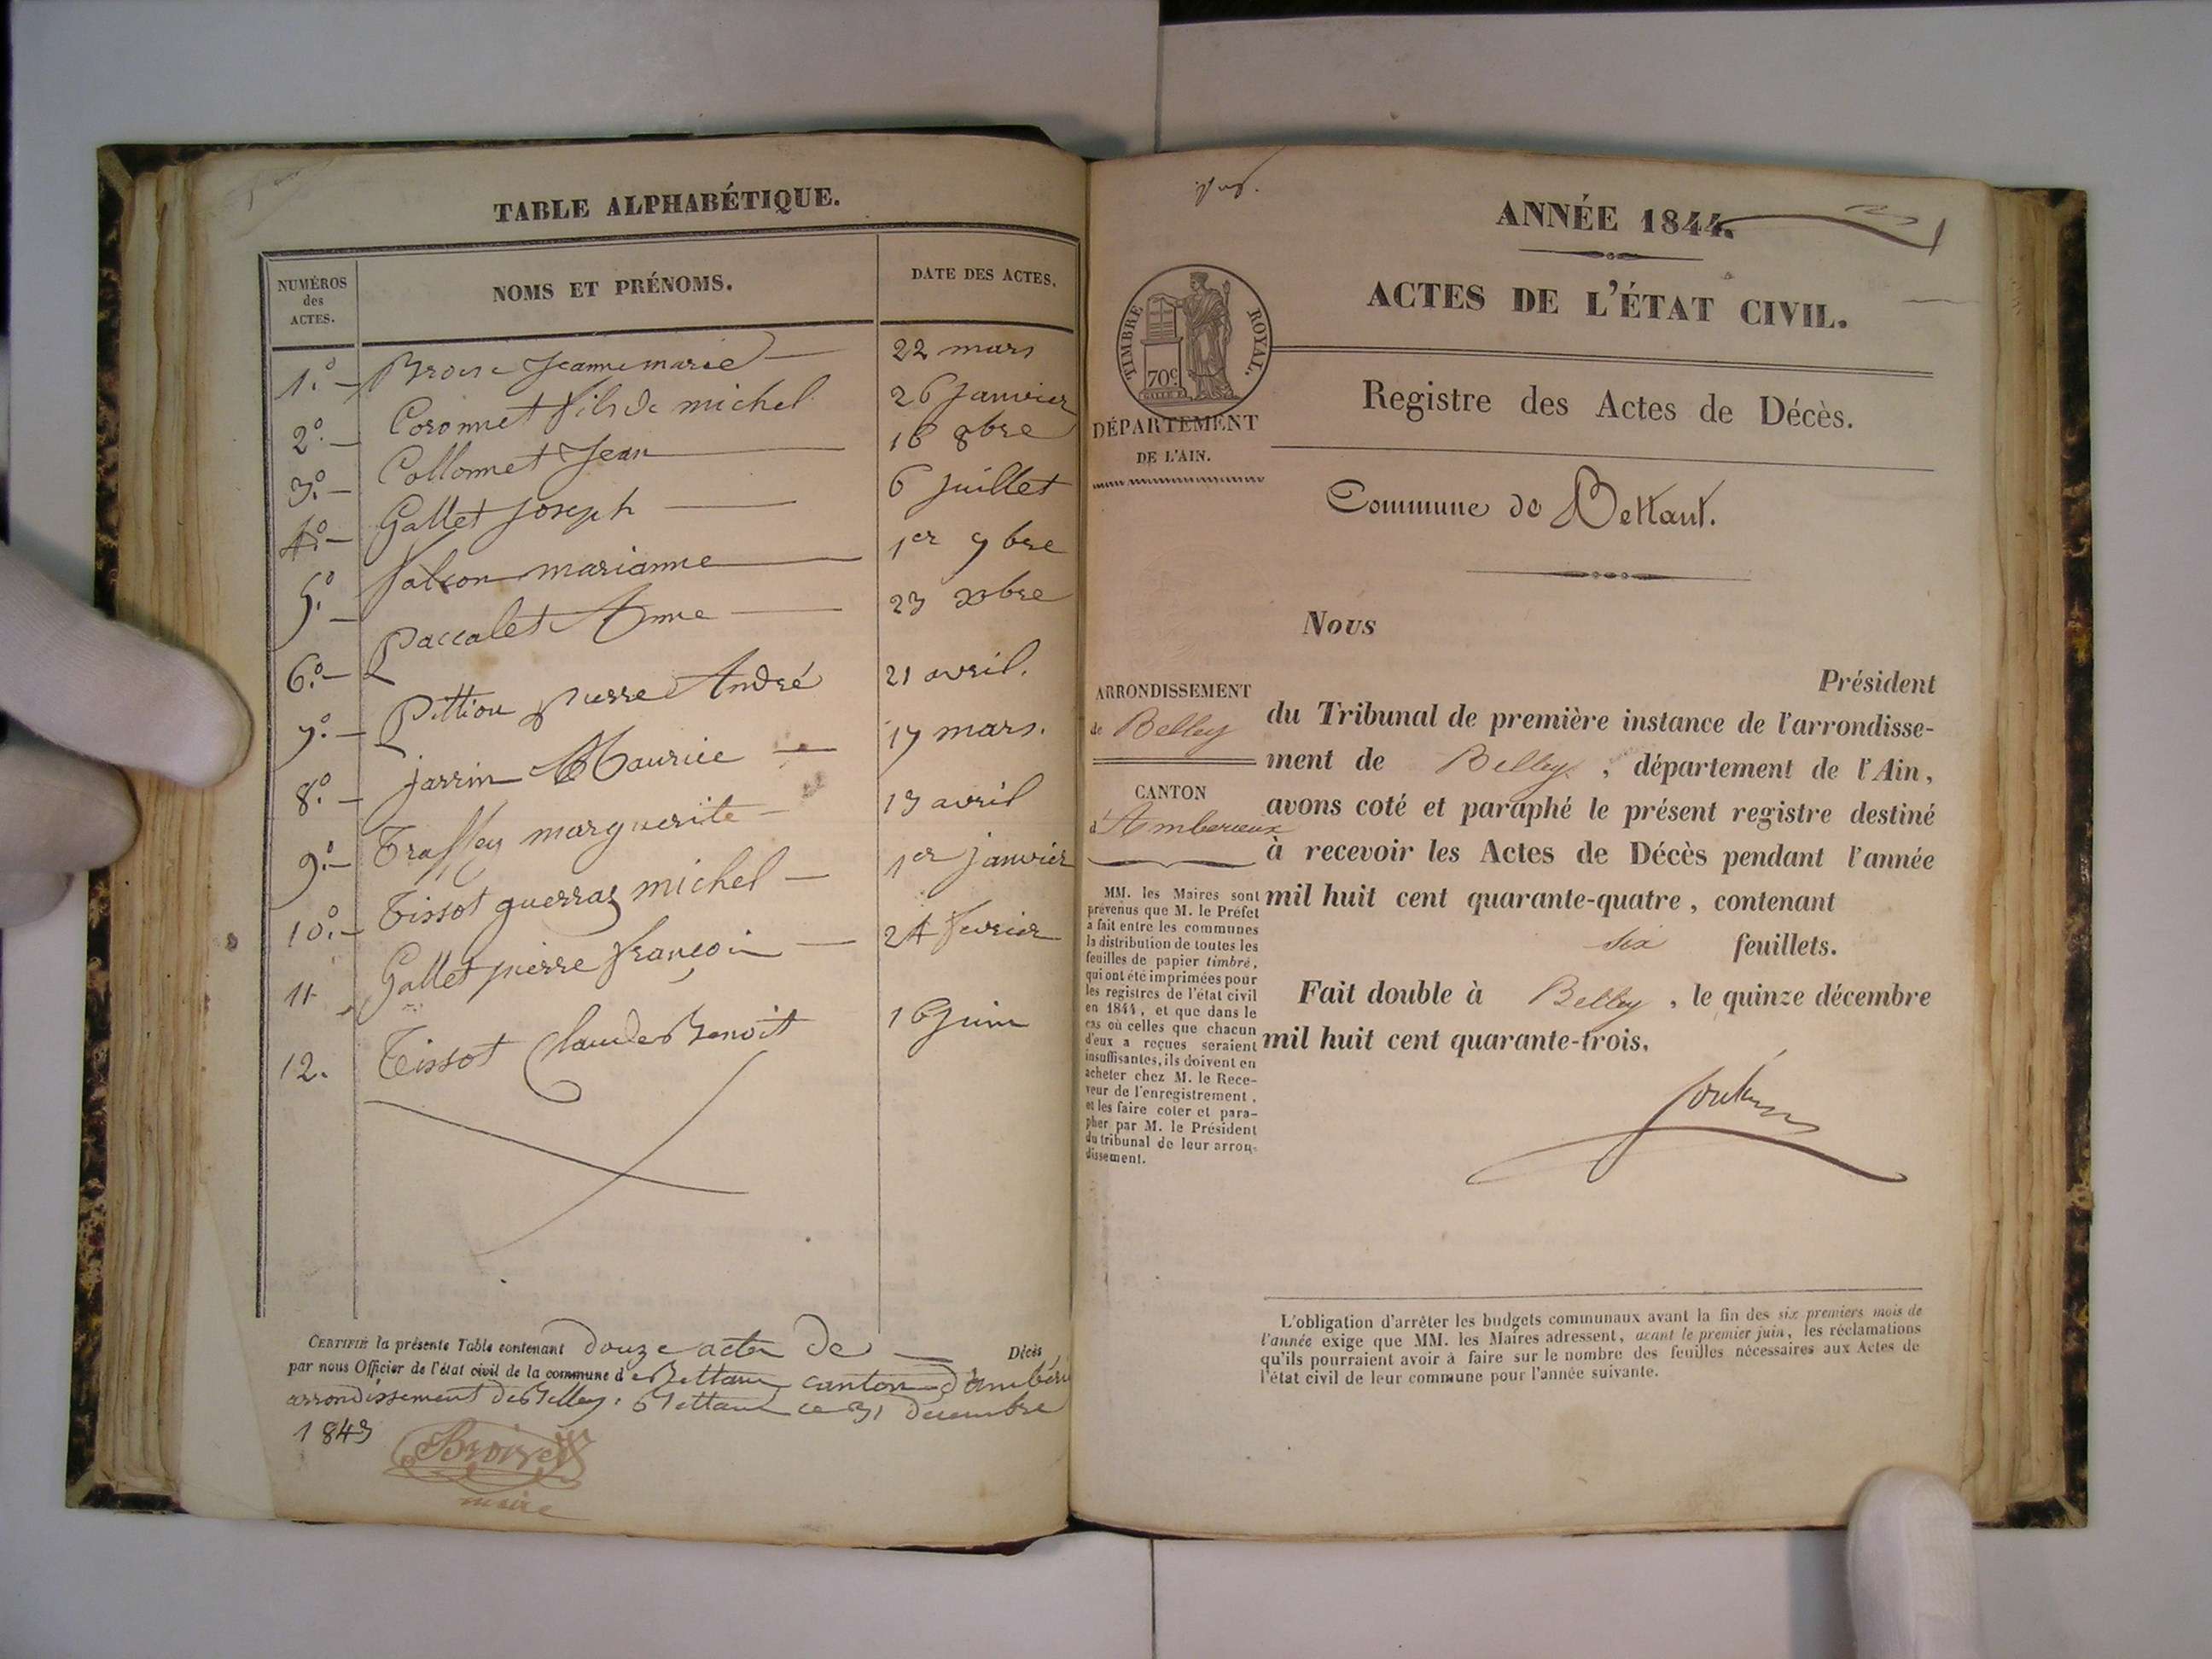 TABLE ALPHABÉTIQUE.
NUMÉROS
des
ACTES.
NOMS ET PRÉNOMS.
DATE DES ACTES.
1.° Broise Jeanne marie 22 mars
2.° Coronnet fils de michel 26 Janvier
3.° Collonnet Jean 16 8bre
4.° Gallet Joseph 6 Juillet
5.° falcon marianne 1er 9bre
6.° Paccalet Anne 23 xbre
7.° Pittion pierre André 21 avril.
8.° jarrin Maurice 17 mars.
9.° Traffey marguerite 13 avril
10.° Tissot guerraz michel 1er janvier
11 Gallet pierre françois 24 fevrier
12. Tissot Claude Benoit 16 Juin
CERTIFIÉ la présente Table contenant douze actes de Décès,
par nous Officier de l'état civil de la commune de Bettant canton d'ambéri
arrondissement de Belley. Bettant ce 31 decembre
1843
Broise
maire
ANNÉE 1844.
ACTES DE L'ÉTAT CIVIL.
TIMBRE ROYAL.
70c
DÉPARTEMENT
DE L'AIN.
Registre des Actes de Décès.
Commune de Bettant.
Nous
Président
ARRONDISSEMENT
de Belley
CANTON
d'Amberieux
du Tribunal de première instance de l'arrondisse-
ment de Belley, département de l'Ain,
avons coté et paraphé le présent registre destiné
à recevoir les Actes de Décès pendant l'année
mil huit cent quarante-quatre, contenant
six feuillets.
Fait double à Belley, le quinze décembre
mil huit cent quarante-trois.
MM. les Maires sont
prévenus que M. le Préfet
a fait entre les communes
la distribution de toutes les
feuilles de papier timbré,
qui ont été imprimées pour
les registres de l'état civil
en 1844, et que dans le
cas où celles que chacun
d'eux a reçues seraient
insuffisantes, ils doivent en
acheter chez M. le Rece-
veur de l'enregistrement,
et les faire coter et para-
pher par M. le Président
du tribunal de leur arron-
dissement.
L'obligation d'arrêter les budgets communaux avant la fin des six premiers mois de
l'année exige que MM. les Maires adressent, avant le premier juin, les réclamations
qu'ils pourraient avoir à faire sur le nombre des feuilles nécessaires aux Actes de
l'état civil de leur commune pour l'année suivante.